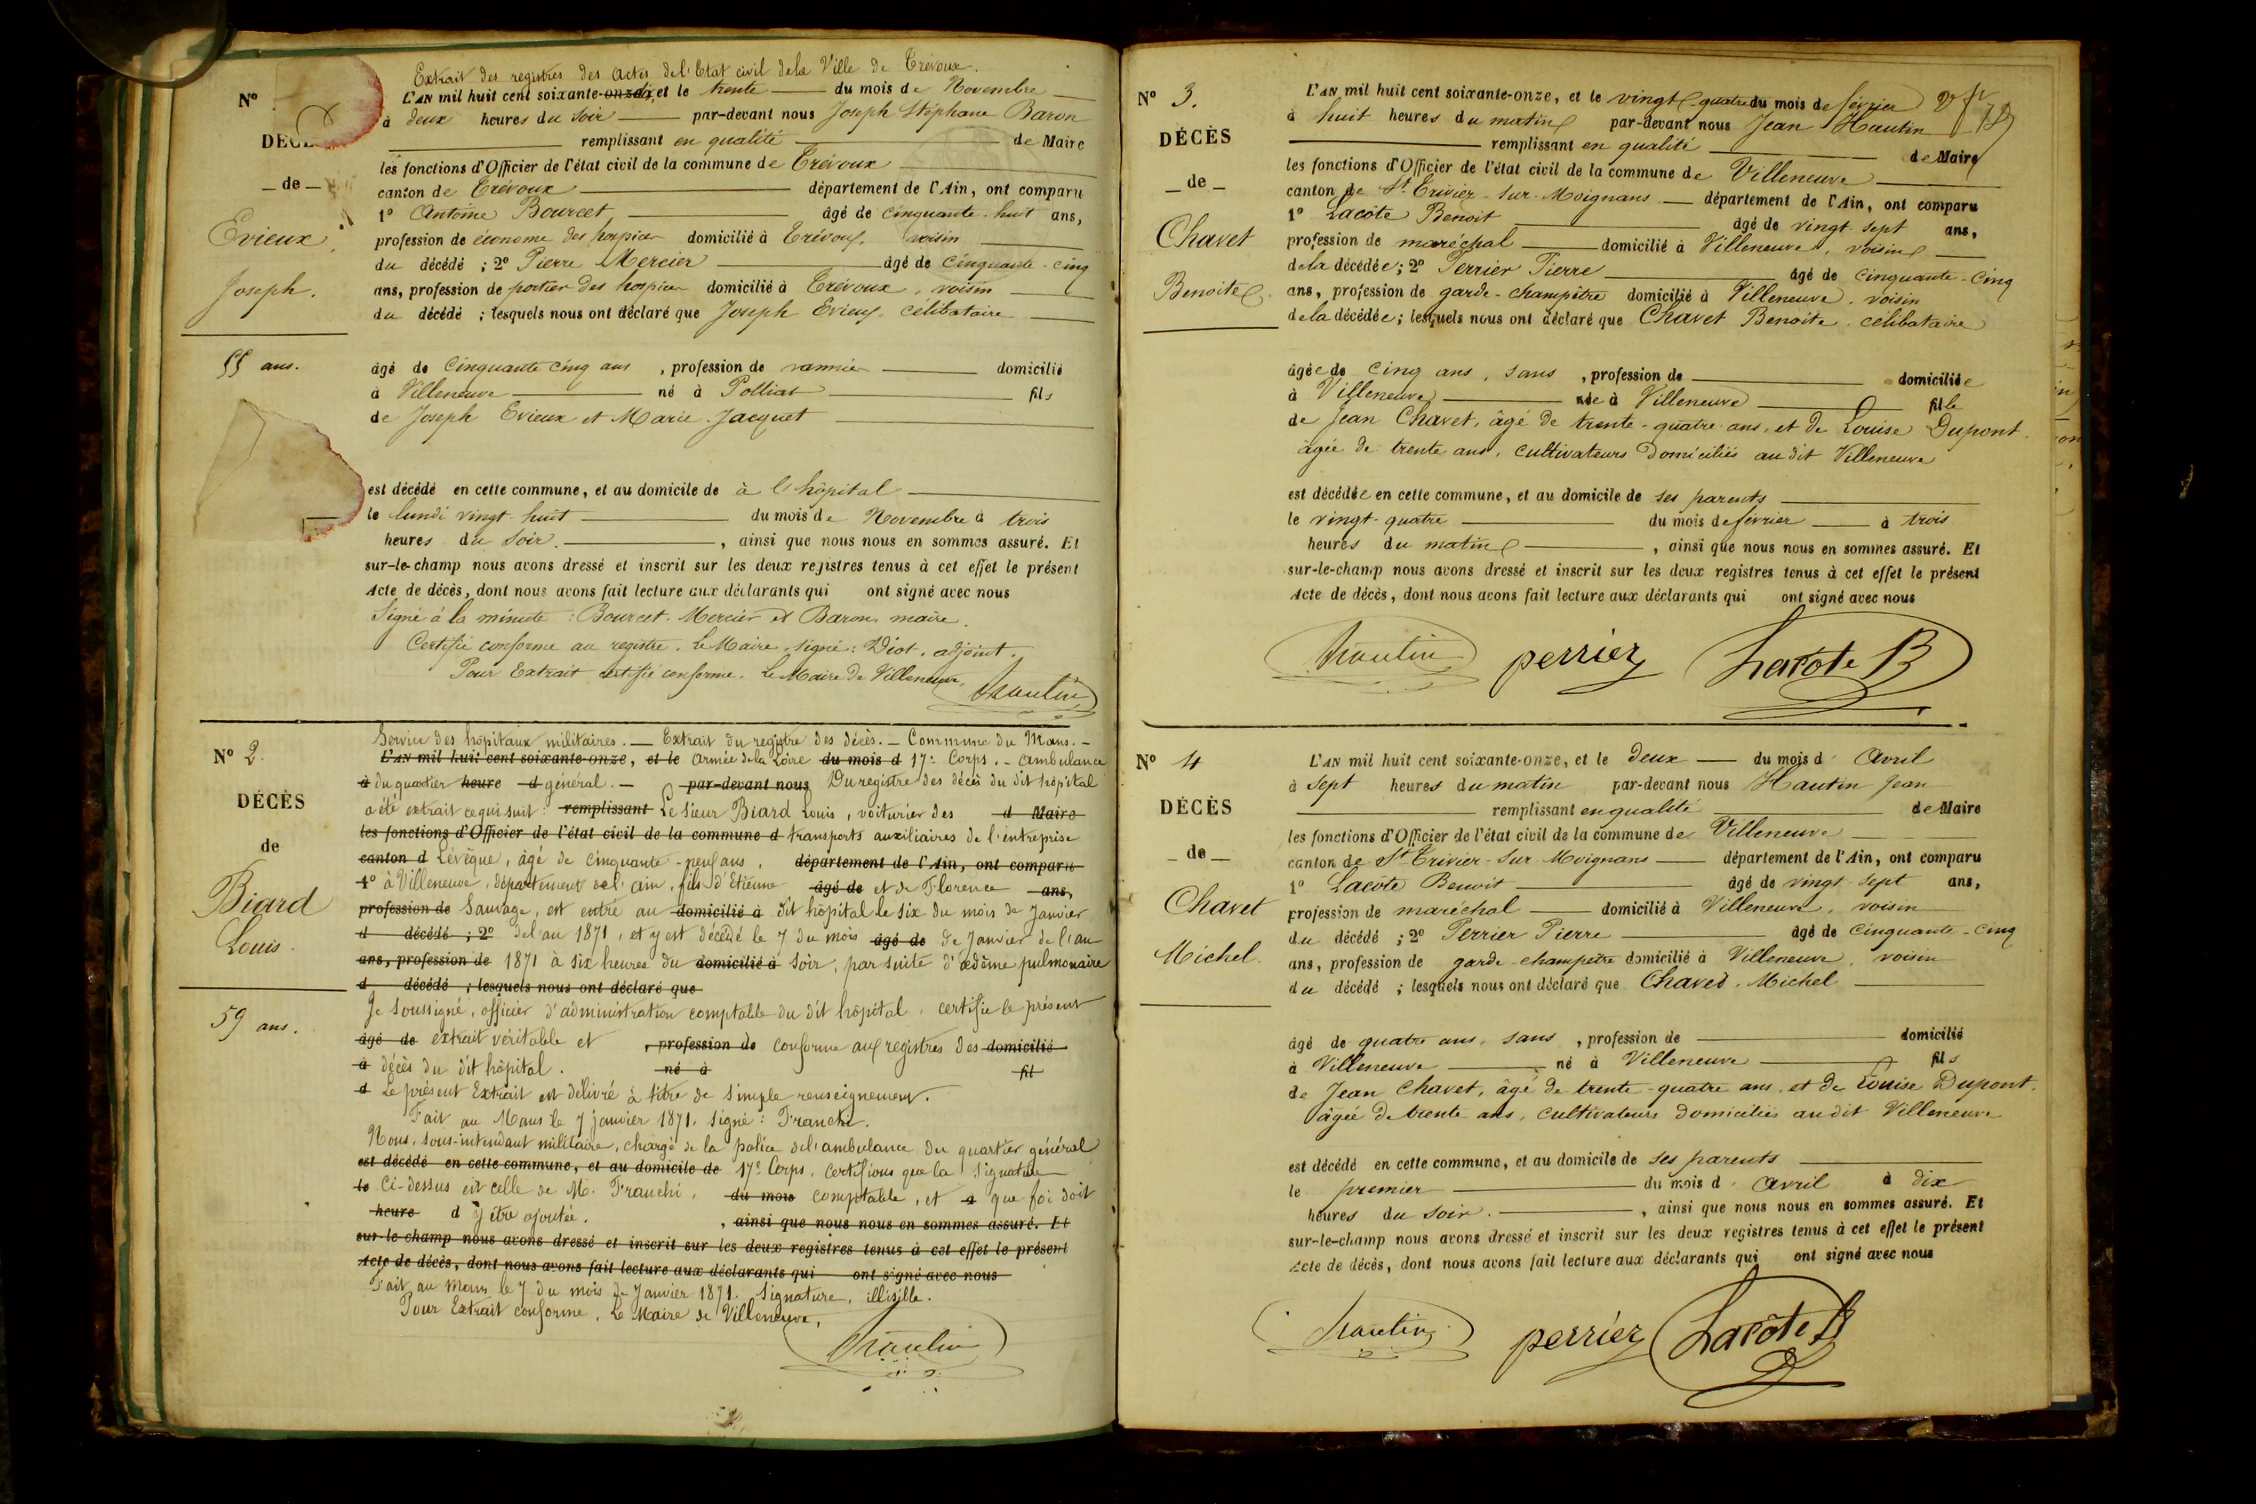 Extrait des registres des actes de l'Etat civil de la Ville de Trévoux.
Nº
L'AN mil huit cent soixante-onze dix, et le trente du mois de Novembre
à deux heures du soir par-devant nous Joseph Stéphane Baron
DÉC
remplissant en qualité de Maire
les fonctions d'Officier de l'état civil de la commune de Trévoux
de
canton de Trévoux département de l'Ain, ont comparu
1º Antoine Bourcet âgé de cinquante-huit ans,
Evieux
profession de économe des hospices domicilié à Trévoux, voisin
du décédé ; 2º Pierre Mercier âgé de cinquante-cinq
Joseph.
ans, profession de portier des hospices domicilié à Trévoux, voisin
du décédé ; lesquels nous ont déclaré que Joseph Evieux, célibataire
55 ans.
âgé de cinquante cinq ans, profession de vannier domicilié
à Villeneuve né à Polliat fils
de Joseph Evieux et Marie Jacquet
est décédé en cette commune, et au domicile de à l'hôpital
le lundi vingt-huit du mois de Novembre à trois
heures du soir, ainsi que nous nous en sommes assuré. Et
sur-le-champ nous avons dressé et inscrit sur les deux registres tenus à cet effet le présent
Acte de décès, dont nous avons fait lecture aux déclarants qui ont signé avec nous
Signé à la minute : Bourcet. Mercier et Baron maire.
Certifié conforme au registre. Le Maire, signé : Diot. adjoint.
Pour Extrait certifié conforme. Le Maire de Villeneuve,
Hautin
Service des hôpitaux militaires. — Extrait du registre des décès. — Commune du Mans. —
Nº 2.
L'AN mil huit cent soixante-onze, et le Armée de la Loire du mois d 17e Corps. - Ambulance
à du quartier heure d général. — par-devant nous Du registre des décès du dit hôpital
DÉCÈS
a été extrait ce qui suit : remplissant Le sieur Biard Louis, voiturier des d Maire
les fonctions d'Officier de l'état civil de la commune d transports auxiliaires de l'entreprise
de
canton d Lévêque, âgé de cinquante-neuf ans, département de l'Ain, ont comparu
1º à Villeneuve, département de l'ain, fils d'Etienne âgé de et de Florence ans,
Biard
profession de Sauvage, est entré au domicilié à dit hôpital le six du mois de Janvier
d décédé ; 2º de l'an 1871, et y est décédé le 7 du mois âgé de de Janvier de l'an
Louis.
ans, profession de 1871 à six heures du domicilié à soir, par suite d'œdème pulmonaire
d décédé ; lesquels nous ont déclaré que
Je soussigné, officier d'administration comptable du dit hôpital, certifie le présent
59 ans.
âgé de extrait véritable et , profession de conforme aux registres des domicilié
à décès du dit hôpital. né à fil
d Le présent Extrait est délivré à titre de simple renseignement.
Fait au Mans le 7 janvier 1871. signé : Franchi.
Nous, sous-intendant militaire, chargé de la police de l'ambulance du quartier général
est décédé en cette commune, et au domicile de 17e Corps, certifions que la signature
le ci-dessus est celle de M. Franchi, du mois comptable, et à que foi doit
heure d y être ajoutée. , ainsi que nous nous en sommes assuré. Et
sur-le-champ nous avons dressé et inscrit sur les deux registres tenus à cet effet le présent
Acte de décès, dont nous avons fait lecture aux déclarants qui ont signé avec nous
Fait au Mans le 7 du mois de Janvier 1871. Signature, illisible.
Pour Extrait conforme. Le Maire de Villeneuve,
Hautin
Nº 3.
L'AN mil huit cent soixante-onze, et le vingt-quatre du mois de février
à huit heures du matin par-devant nous Jean Hautin
DÉCÈS
remplissant en qualité de Maire
les fonctions d'Officier de l'état civil de la commune de Villeneuve
de
canton de St Trivier-sur-Moignans département de l'Ain, ont comparu
1º Lacôte Benoit âgé de vingt-sept ans,
Chavet
profession de maréchal domicilié à Villeneuve, voisin
de la décédée ; 2º Perrier Pierre âgé de cinquante-cinq
Benoite
ans, profession de garde-champêtre domicilié à Villeneuve, voisin
de la décédée ; lesquels nous ont déclaré que Chavet Benoite, célibataire
âgée de cinq ans, sans, profession de domiciliée
à Villeneuve née à Villeneuve fille
de Jean Chavet, âgé de trente-quatre ans, et de Louise Dupont,
âgée de trente ans, cultivateurs domiciliés au dit Villeneuve
est décédée en cette commune, et au domicile de ses parents
le vingt-quatre du mois de février à trois
heures du matin, ainsi que nous nous en sommes assuré. Et
sur-le-champ nous avons dressé et inscrit sur les deux registres tenus à cet effet le présent
Acte de décès, dont nous avons fait lecture aux déclarants qui ont signé avec nous
Hautin perrier Lacôte B
Nº 4
L'AN mil huit cent soixante-onze, et le deux du mois d'Avril
à sept heures du matin par-devant nous Hautin Jean
DÉCÈS
remplissant en qualité de Maire
les fonctions d'Officier de l'état civil de la commune de Villeneuve
de
canton de St Trivier-sur-Moignans département de l'Ain, ont comparu
1º Lacôte Benoit âgé de vingt-sept ans,
Chavet
profession de maréchal domicilié à Villeneuve, voisin
du décédé ; 2º Perrier Pierre âgé de cinquante-cinq
Michel.
ans, profession de garde-champêtre domicilié à Villeneuve, voisin
du décédé ; lesquels nous ont déclaré que Chavet Michel
âgé de quatre ans, sans, profession de domicilié
à Villeneuve né à Villeneuve fils
de Jean Chavet, âgé de trente-quatre ans, et de Louise Dupont,
âgée de trente ans, cultivateurs domiciliés au dit Villeneuve
est décédé en cette commune, et au domicile de ses parents
le premier du mois d'Avril à dix
heures du soir, ainsi que nous nous en sommes assuré. Et
sur-le-champ nous avons dressé et inscrit sur les deux registres tenus à cet effet le présent
Acte de décès, dont nous avons fait lecture aux déclarants qui ont signé avec nous
Hautin perrier Lacôte B